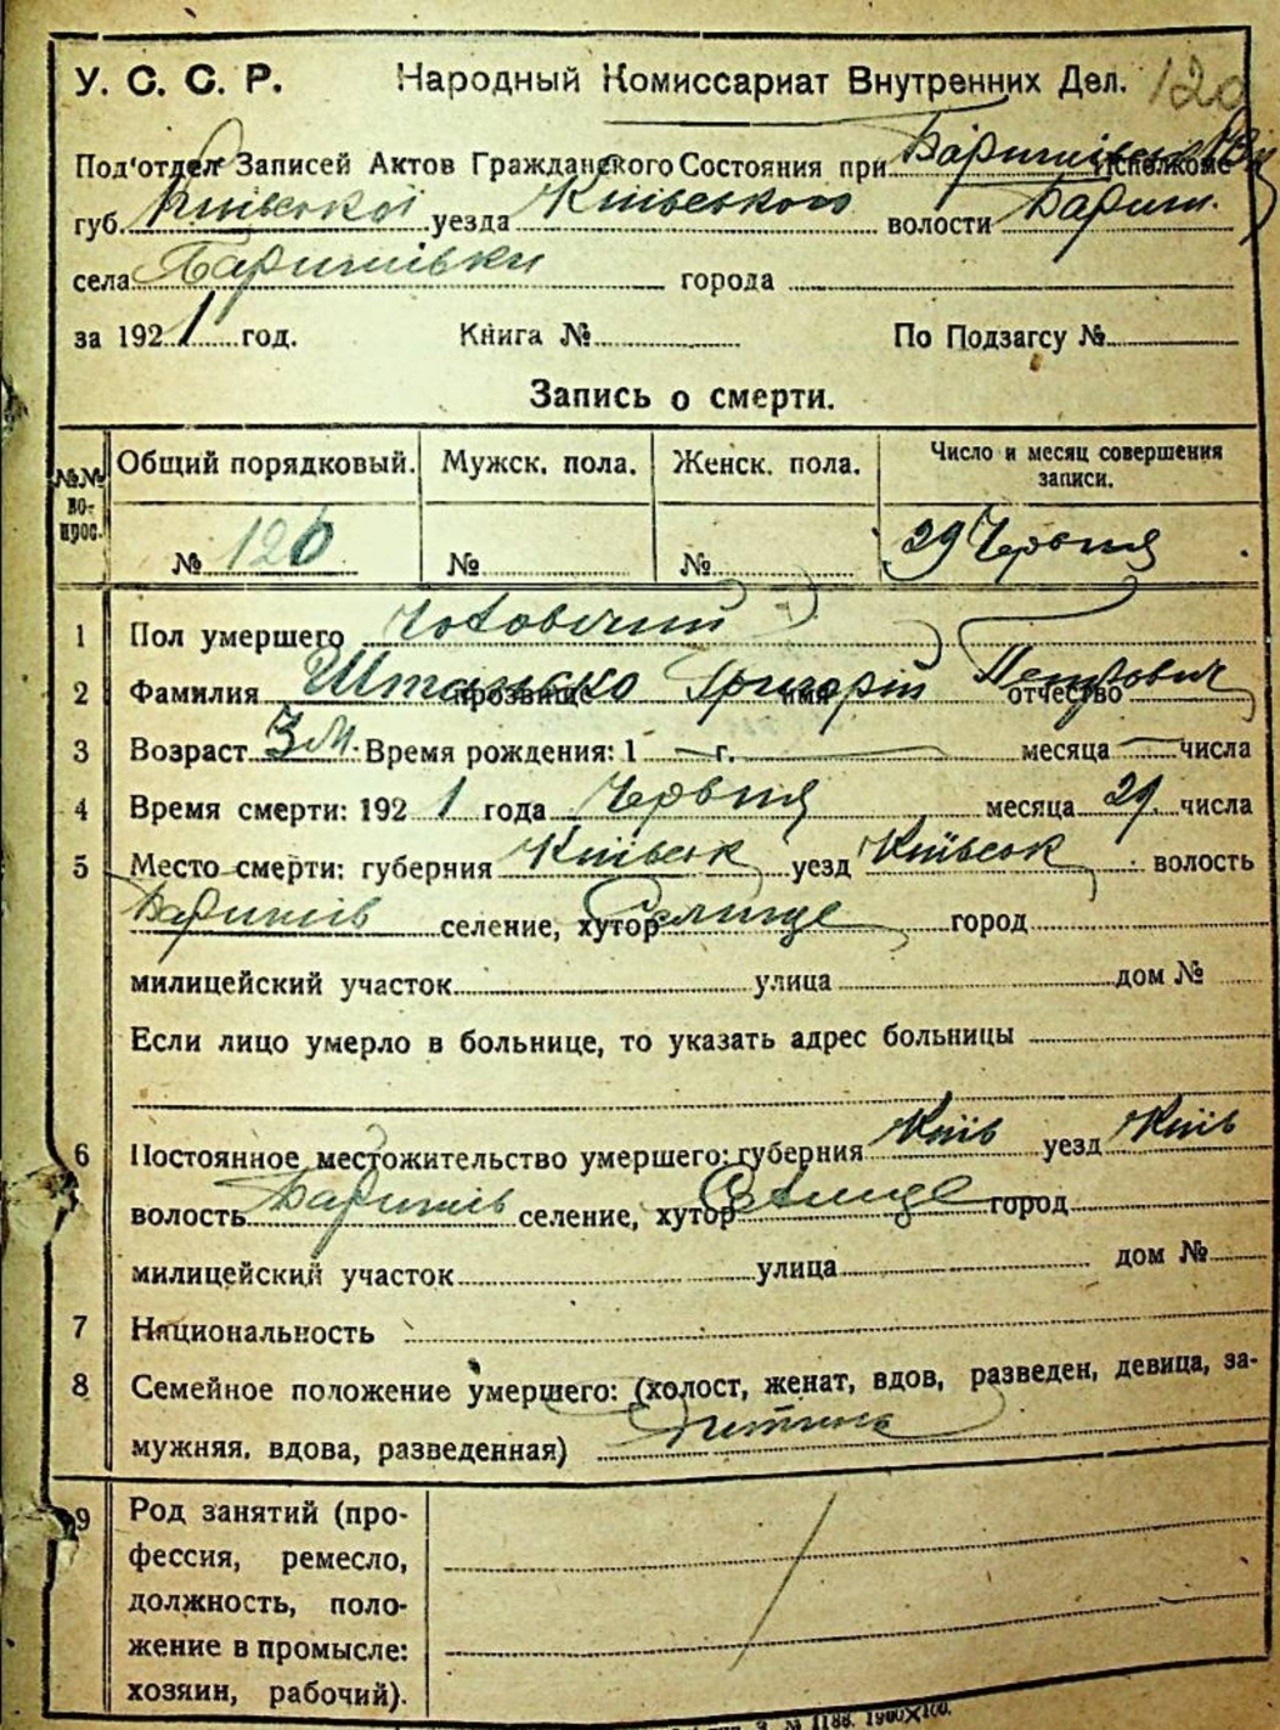 У. С. С. Р. Народный Комиссариат Внутренних Дел. 120
Под'отдел Записей Актов Гражданского Состояния при Исполкоме
губ. Київської уезда Київського волости Бариш.
села Баришівки города
за 1921 год. Книга № По Подзагсу №
Запись о смерти.
№№ вопрос. Общий порядковый. Мужск. пола. Женск. пола. Число и месяц совершения записи.
№ 120 № № 29 Червня
1 Пол умершего Чоловічий
2 Фамилия прозвище Григорій имя Петрович отчество
3 Возраст 3 м. Время рождения: 1 — г. — месяца — числа
4 Время смерти: 1921 года Червня месяца 29. числа
5 Место смерти: губерния Київськ уезд Київськ волость
Баришів селение, хутор Селище город
милицейский участок улица дом №
Если лицо умерло в больнице, то указать адрес больницы
6 Постоянное местожительство умершего: губерния Київ уезд Київ
волость Баришів селение, хутор Селище город
милицейский участок улица дом №
7 Национальность
8 Семейное положение умершего: (холост, женат, вдов, разведен, девица, за-
мужняя, вдова, разведенная) Дитина
9 Род занятий (про-
фессия, ремесло,
должность, поло-
жение в промысле:
хозяин, рабочий).
№ 1188. 1900×100.